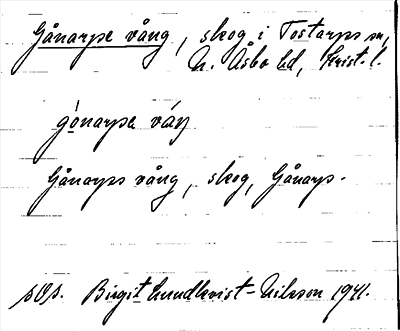 Gånarps vång, skog i Tostarps sn,
N. Åsbo hd, Krist. l.
gónarpa váŋ
Gånarps vång, skog, Gånarp.
Birgit Lundkvist-Nilsson 1941.